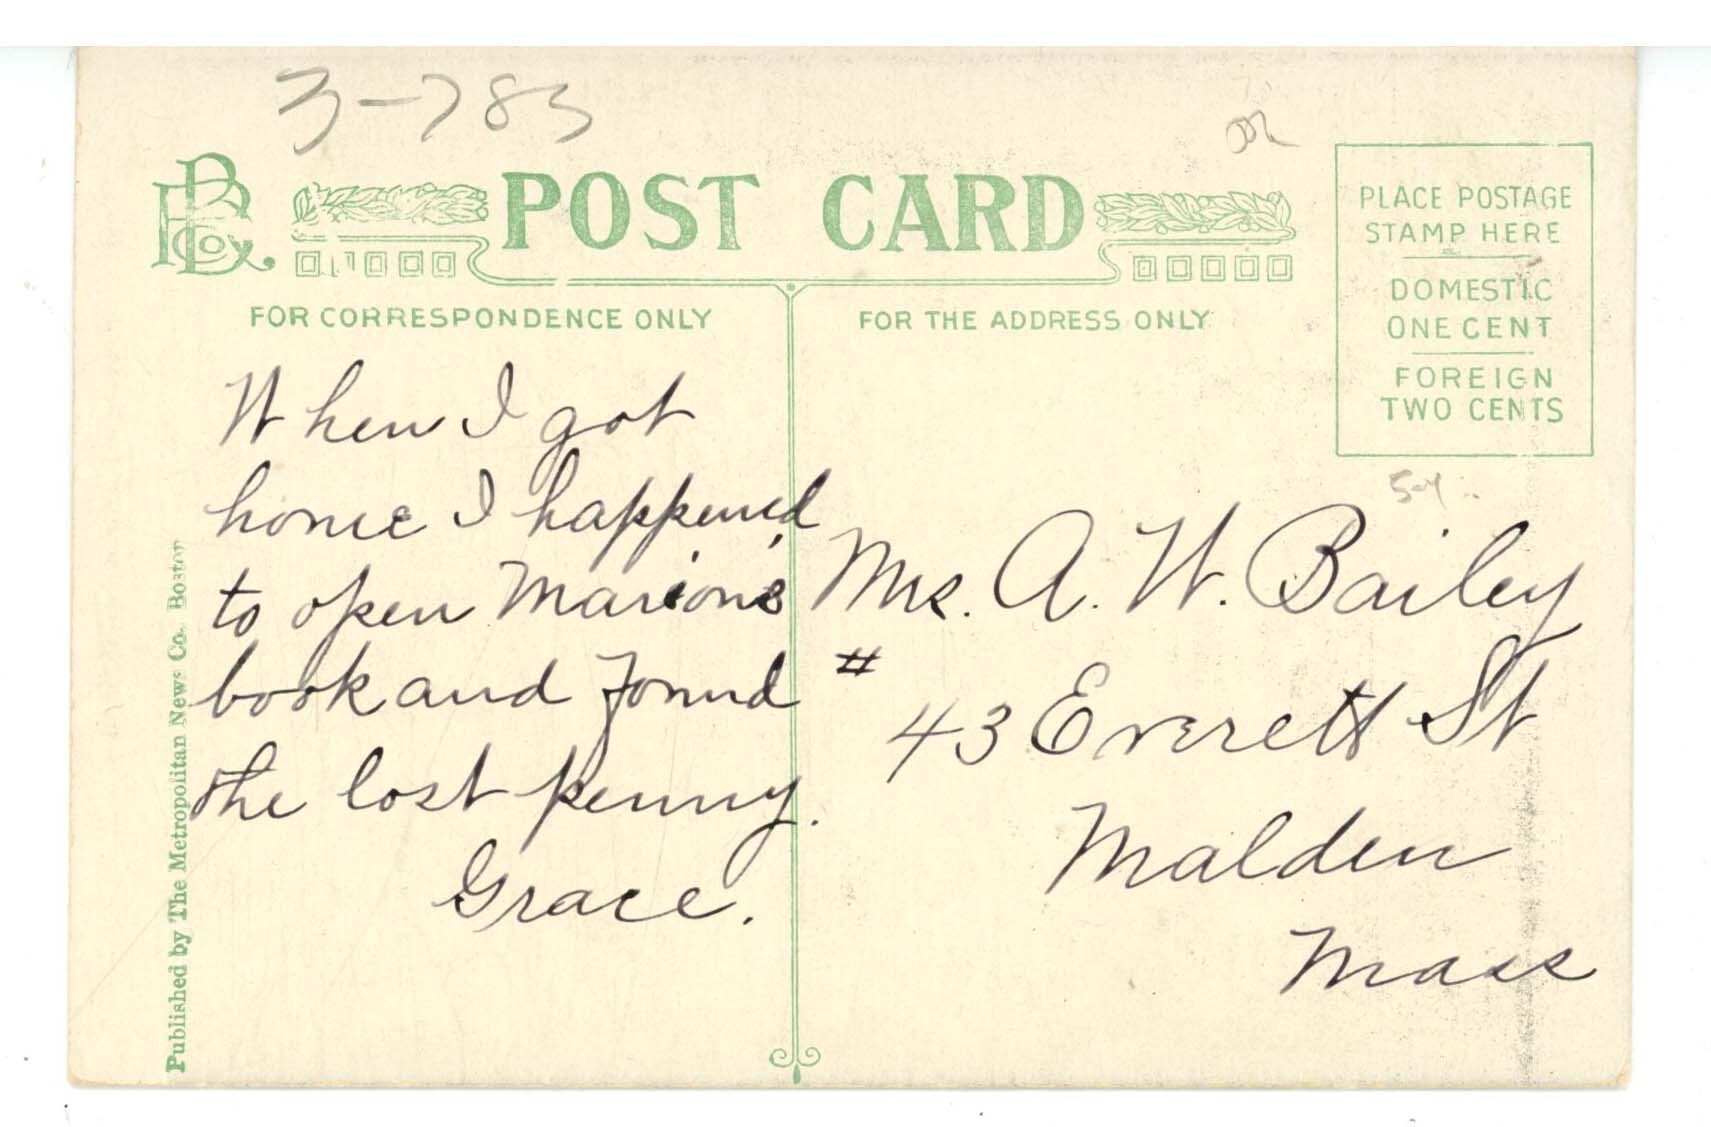 3-783
POST CARD
PLACE POSTAGE
STAMP HERE
DOMESTIC
ONE CENT
FOREIGN
TWO CENTS
FOR CORRESPONDENCE ONLY
FOR THE ADDRESS ONLY
When I got
home I happened
to open Marion's
book and found
the lost penny.
Grace.
Mrs. A. W. Bailey
# 43 Everett St
Malden
Mass
Published by The Metropolitan News Co. Boston